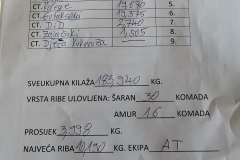 CT. 19.630 5.
CT. 19.375 6.
CT. DiD 2.740 7.
CT. 1.505 8.
CT. 9.
SVEUKUPNA KILAŽA 183,940 KG.
VRSTA RIBE ULOVLJENA: ŠARAN 30 KOMADA
AMUR 16 KOMADA
PROSIJEK 3,998 KG.
NAJVEĆA RIBA 10,190 KG. EKIPA AT